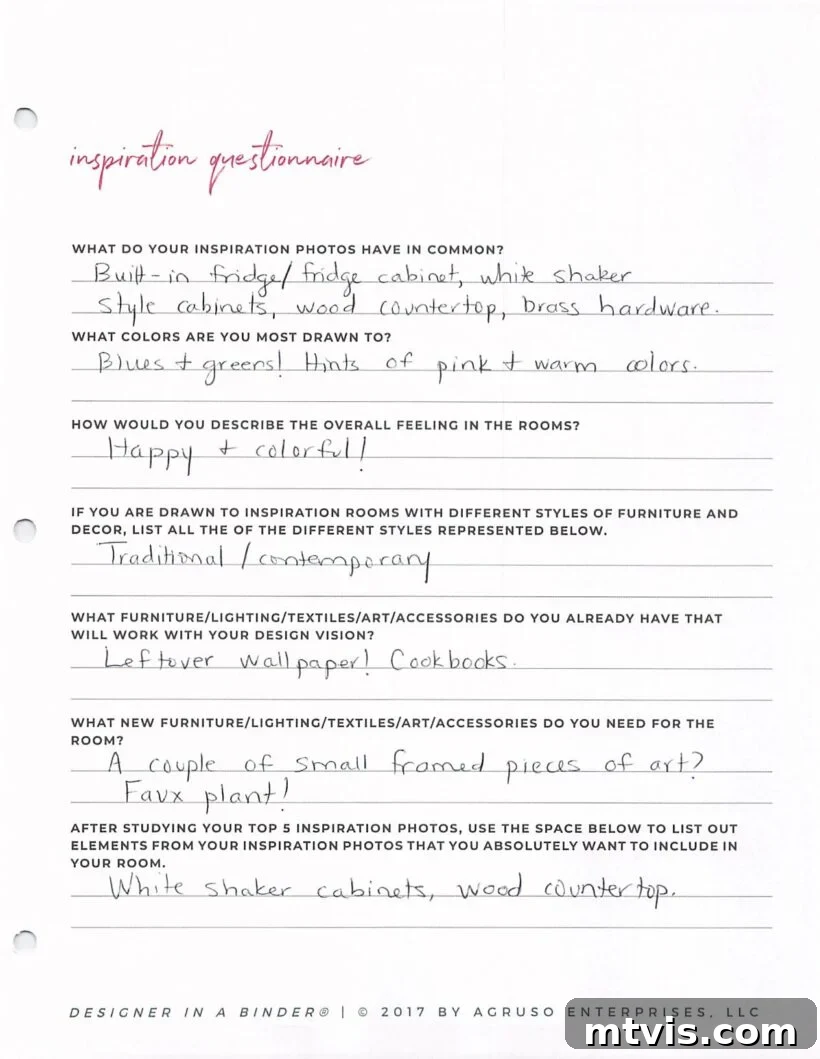 inspiration questionnaire
WHAT DO YOUR INSPIRATION PHOTOS HAVE IN COMMON?
Built-in fridge/ fridge cabinet, white shaker
style cabinets, wood countertop, brass hardware.
WHAT COLORS ARE YOU MOST DRAWN TO?
Blues + greens! Hints of pink + warm colors.
HOW WOULD YOU DESCRIBE THE OVERALL FEELING IN THE ROOMS?
Happy + colorful!
IF YOU ARE DRAWN TO INSPIRATION ROOMS WITH DIFFERENT STYLES OF FURNITURE AND
DECOR, LIST ALL THE OF THE DIFFERENT STYLES REPRESENTED BELOW.
Traditional / contemporary
WHAT FURNITURE/LIGHTING/TEXTILES/ART/ACCESSORIES DO YOU ALREADY HAVE THAT
WILL WORK WITH YOUR DESIGN VISION?
Leftover wallpaper! Cookbooks.
WHAT NEW FURNITURE/LIGHTING/TEXTILES/ART/ACCESSORIES DO YOU NEED FOR THE
ROOM?
A couple of small framed pieces of art?
Faux plant!
AFTER STUDYING YOUR TOP 5 INSPIRATION PHOTOS, USE THE SPACE BELOW TO LIST OUT
ELEMENTS FROM YOUR INSPIRATION PHOTOS THAT YOU ABSOLUTELY WANT TO INCLUDE IN
YOUR ROOM.
White shaker cabinets, wood countertop.
DESIGNER IN A BINDER® | © 2017 BY AGRUSO ENTERPRISES, LLC
mtvis.com